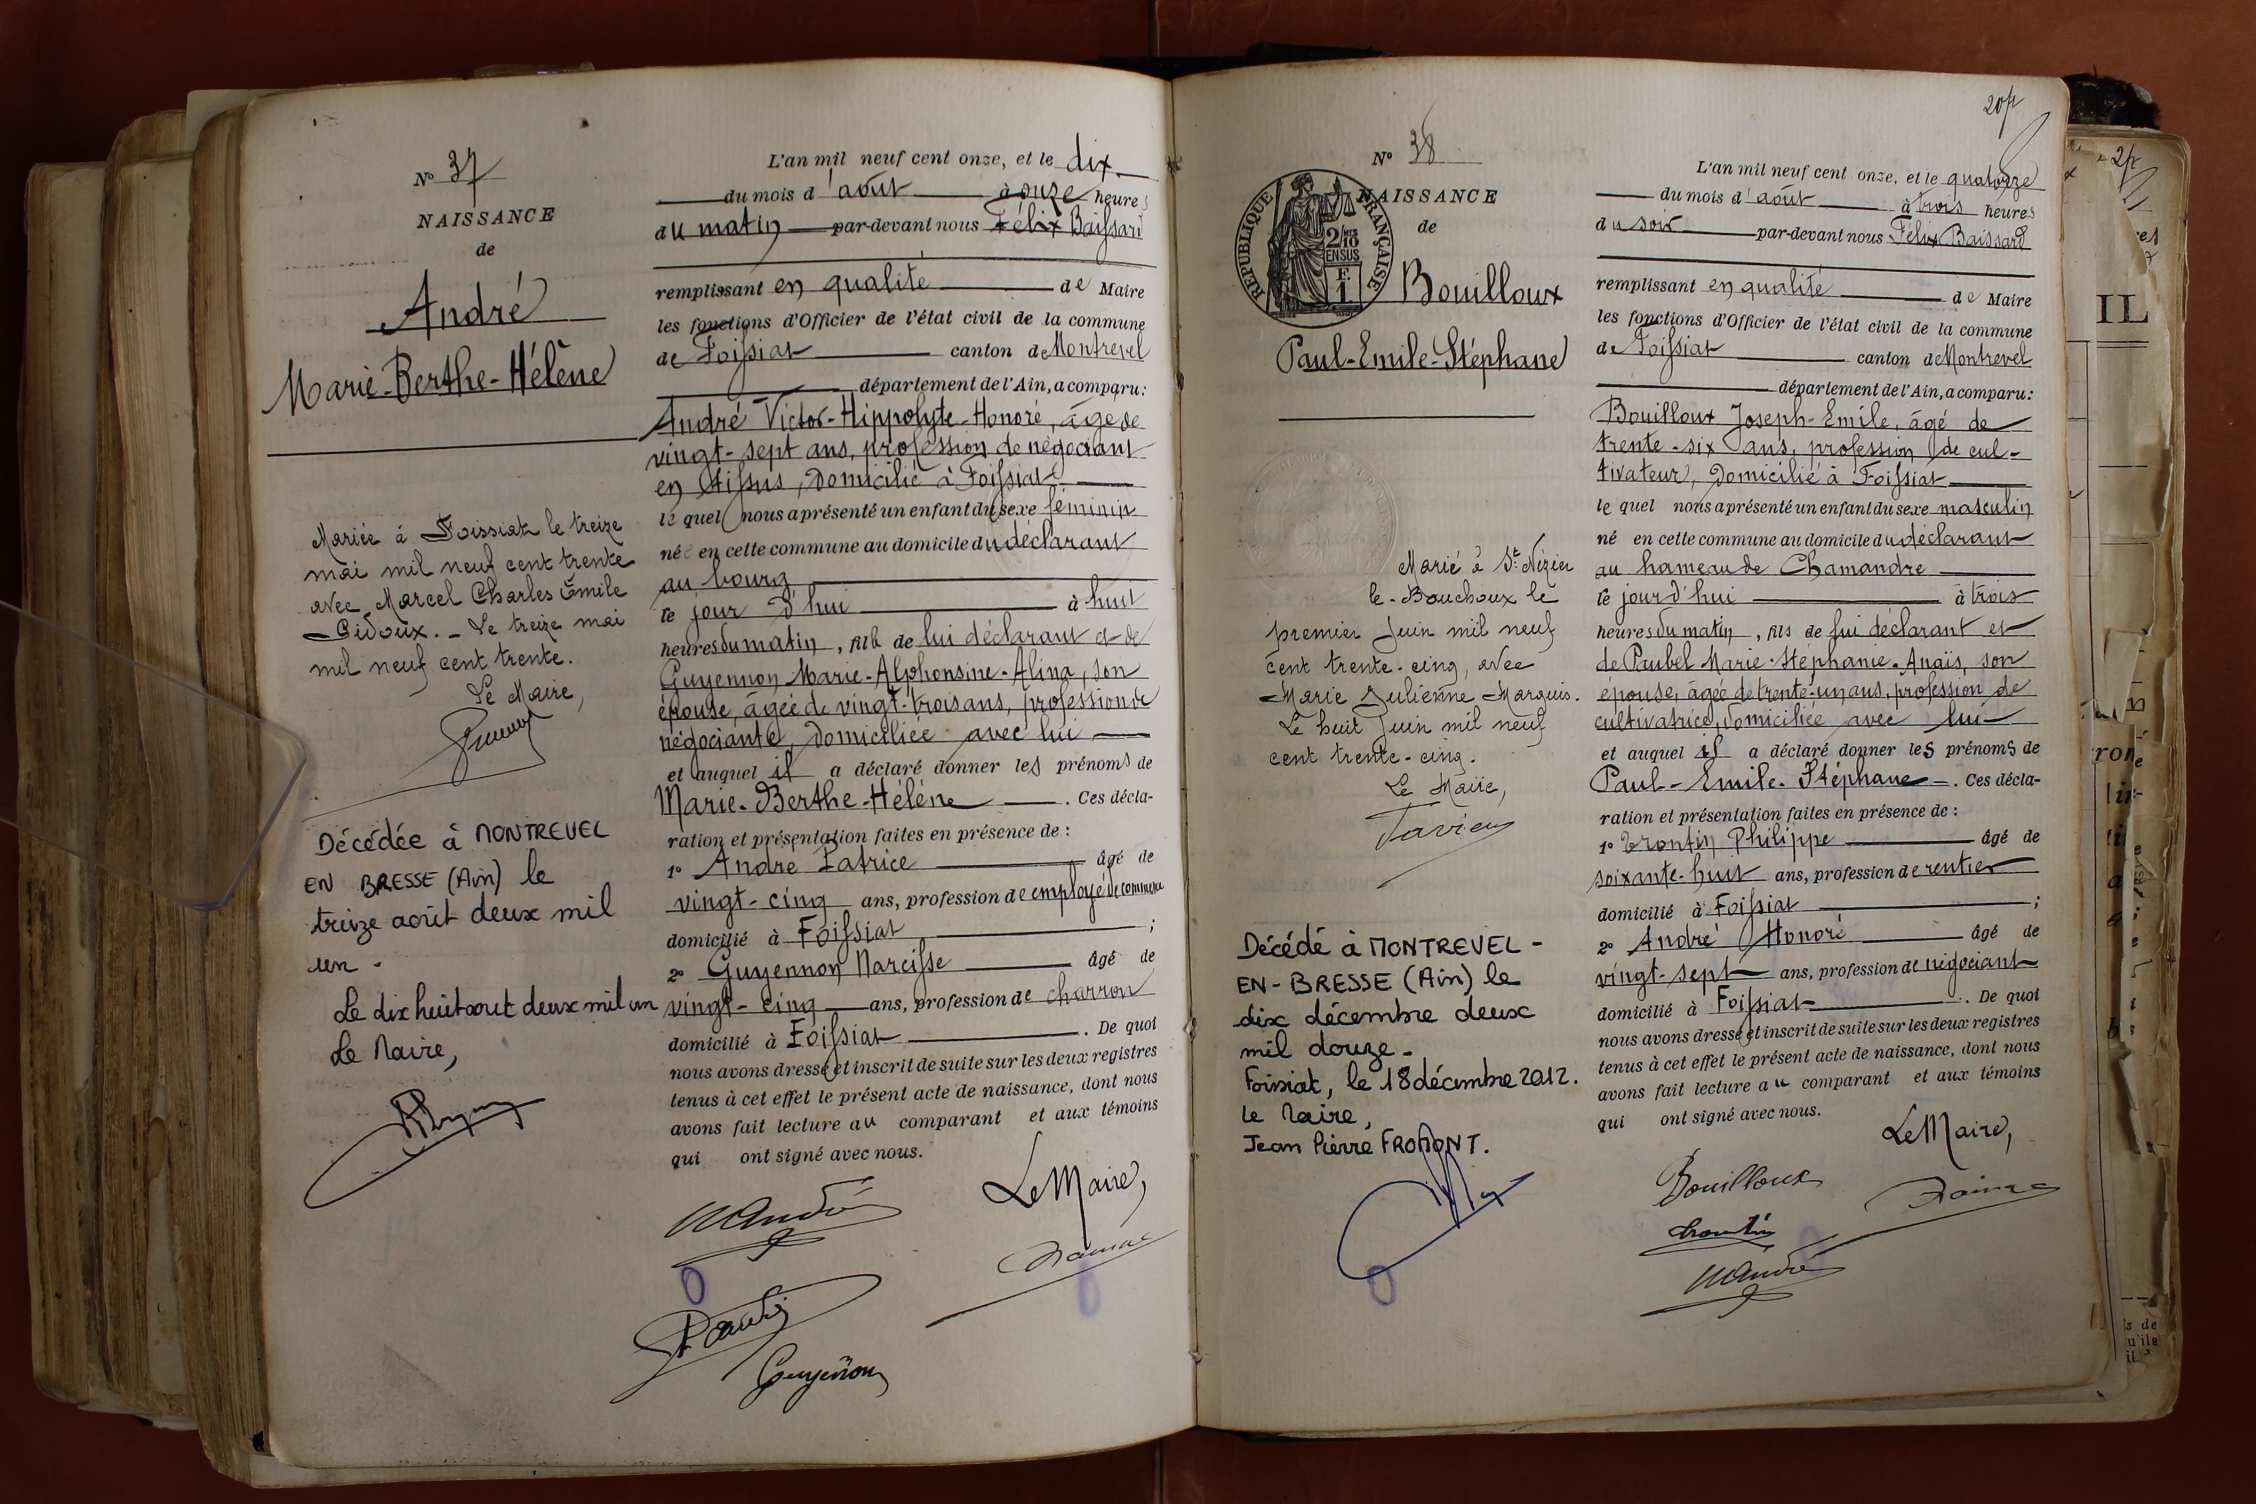 N° 37
NAISSANCE
de
André
Marie-Berthe-Hélène
Mariée à Foissiat le treize
mai mil neuf cent trente
avec Marcel Charles Emile
Gidoux. - Le treize mai
mil neuf cent trente.
Le Maire,
Décédée à MONTREVEL
EN BRESSE (Ain) le
treize août deux mil
un -
Le dix huit aout deux mil un
Le Maire,
L'an mil neuf cent onze, et le dix
du mois d'août à onze heures
du matin par-devant nous Félix Baissard
remplissant en qualité de Maire
les fonctions d'Officier de l'état civil de la commune
de Foissiat canton de Montrevel
département de l'Ain, a comparu:
André Victor-Hippolyte-Honoré, âgé de
vingt-sept ans, profession de négociant
en tissus, domicilié à Foissiat
le quel nous a présenté un enfant du sexe féminin
née en cette commune au domicile du déclarant
au bourg
le jour d'hui à huit
heures du matin, fille de lui déclarant et de
Guyennon Marie-Alphonsine-Alina, son
épouse, âgée de vingt-trois ans, profession de
négociante, domiciliée avec lui
et auquel il a déclaré donner les prénoms de
Marie-Berthe-Hélène. Ces décla-
ration et présentation faites en présence de :
1° André Patrice âgé de
vingt-cinq ans, profession de employé de commerce
domicilié à Foissiat ;
2° Guyennon Narcisse âgé de
vingt-cinq ans, profession de charron
domicilié à Foissiat. De quoi
nous avons dressé et inscrit de suite sur les deux registres
tenus à cet effet le présent acte de naissance, dont nous
avons fait lecture au comparant et aux témoins
qui ont signé avec nous.
Le Maire,
H André
P André
Guyennon
N° 38
NAISSANCE
de
RÉPUBLIQUE FRANÇAISE
2/10
EN SUS
F.
1
Bouilloux
Paul-Emile-Stéphane
Marié à St Nizier
le-Bouchoux le
premier Juin mil neuf
cent trente-cinq, avec
Marie Julienne Marquis.
Le huit Juin mil neuf
cent trente-cinq.
Le Maire,
Décédé à MONTREVEL -
EN-BRESSE (Ain) le
dix décembre deux
mil douze -
Foissiat, le 18 décembre 2012.
Le Maire,
Jean Pierre FROMONT.
L'an mil neuf cent onze, et le quatorze
du mois d'août à trois heures
du soir par-devant nous Félix Baissard
remplissant en qualité de Maire
les fonctions d'Officier de l'état civil de la commune
de Foissiat canton de Montrevel
département de l'Ain, a comparu:
Bouilloux Joseph-Emile, âgé de
trente-six ans, profession de cul-
tivateur, domicilié à Foissiat
le quel nous a présenté un enfant du sexe masculin
né en cette commune au domicile du déclarant
au hameau de Chamandre
le jour d'hui à trois
heures du matin, fils de lui déclarant et
de Paubel Marie-Stéphanie-Anaïs, son
épouse, âgée de trente-un ans, profession de
cultivatrice, domiciliée avec lui
et auquel il a déclaré donner les prénoms de
Paul-Emile-Stéphane. Ces décla-
ration et présentation faites en présence de :
1° Trontin Philippe âgé de
soixante-huit ans, profession de rentier
domicilié à Foissiat ;
2° André Honoré âgé de
vingt-sept ans, profession de négociant
domicilié à Foissiat. De quoi
nous avons dressé et inscrit de suite sur les deux registres
tenus à cet effet le présent acte de naissance, dont nous
avons fait lecture au comparant et aux témoins
qui ont signé avec nous.
Le Maire,
Bouilloux
Trontin
H André
IL